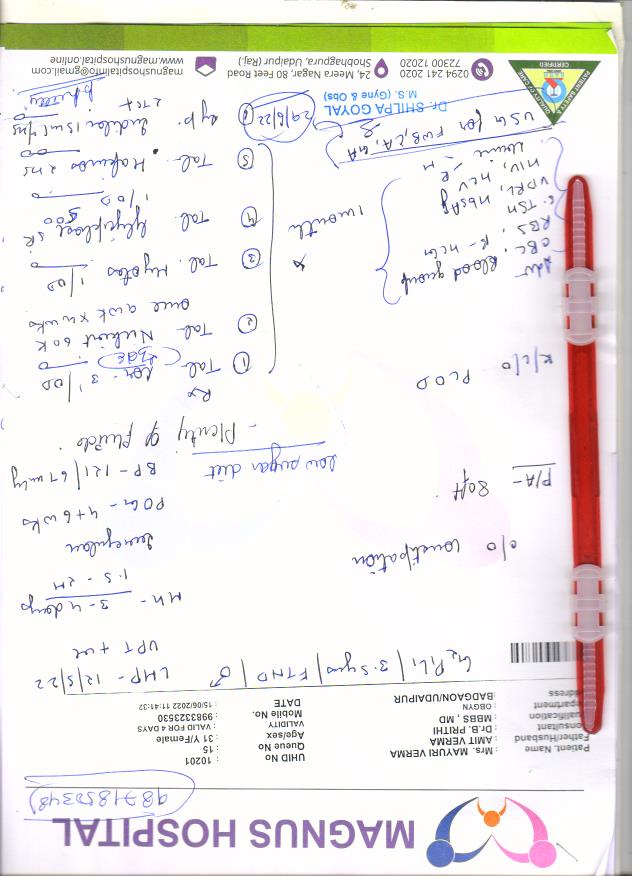 MAGNUS HOSPITAL
9871852348
Patient. Name : Mrs. MAYURI VERMA UHID No : 10201
Father/Husband : AMIT VERMA Queue No : 15
Consultant : Dr.B. PRITHI Age/sex : 31 Y/Female
Qualification : MBBS , MD VALIDITY : VALID FOR 4 DAYS
Department : OBGYN Mobile No. : 9983323530
Address : BADGAON/UDAIPUR DATE : 15/06/2022 11:41:32
G2P1L1 / 3.5yrs / FTND / ♂
LMP - 12/5/22
UPT +ve
MH - 3-4 days
1.5 - 2M
Irregular
c/o constipation
POG - 4+6 wks
P/A - Soft
BP - 121/67 mmHg
low sugar diet
- Plenty of fluids
K/c/o PCOD
Rx
① Tab.
1/OD
② Tab. 60K
once a wk x 4 wks
③ Tab. 1/OD
④ Tab. SR 500
1/OD
⑤ Tab.
⑥ Syp.
1 month
Adv
Blood group
CBC, B-HCG
RBS,
S. TSH
VDRL, HBsAg
HIV, HCV
Urine - R/M
USG for FWB, CA, GA
29/6/22
Dr. SHILPA GOYAL
M.S. (Gyne & Obs)
PATIENT SAFETY & QUALITY CARE
CERTIFIED
0294 241 2020
72300 12020
24, Meera Nagar, 80 Feet Road
Shobhagpura, Udaipur (Raj.)
magnushospitalinfo@gmail.com
www.magnushospital.online